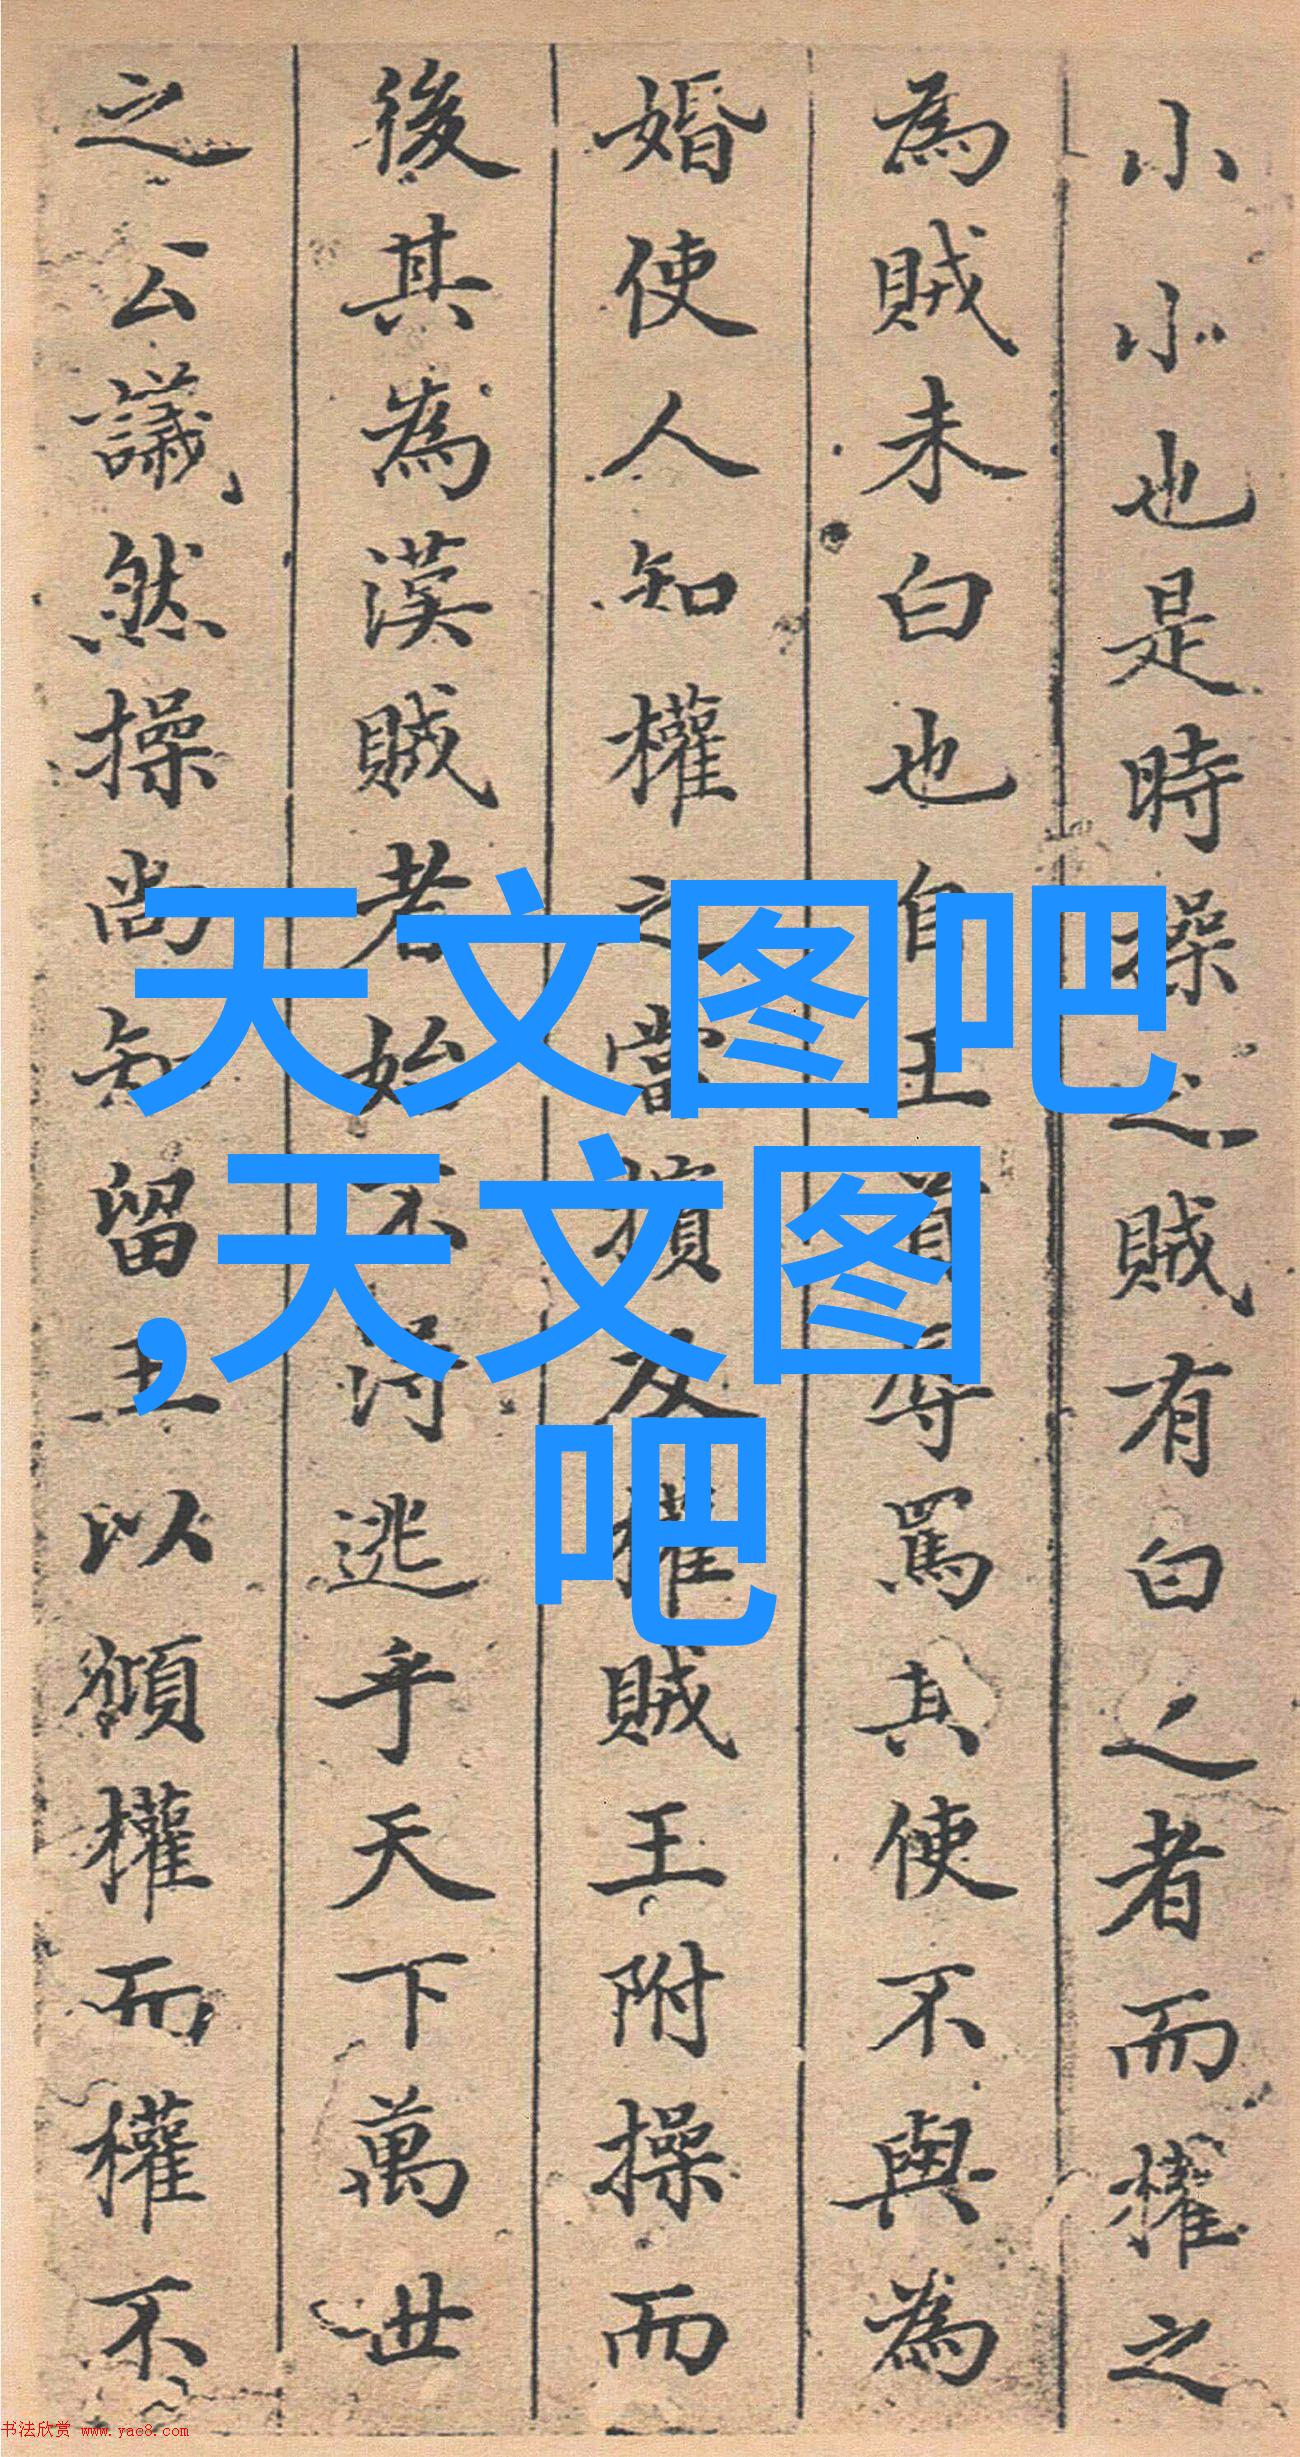 小小也是時操之賊有白之者而權之
為賊未白也自王 辱罵其使不與為
婚使人知權之當擯及權賊王附操而
後其為漢賊者始不得逃乎天下萬世
之公議然操尚知留王以頒權而權不
天文图吧
,天文图
吧
书法欣赏 www.yac8.com